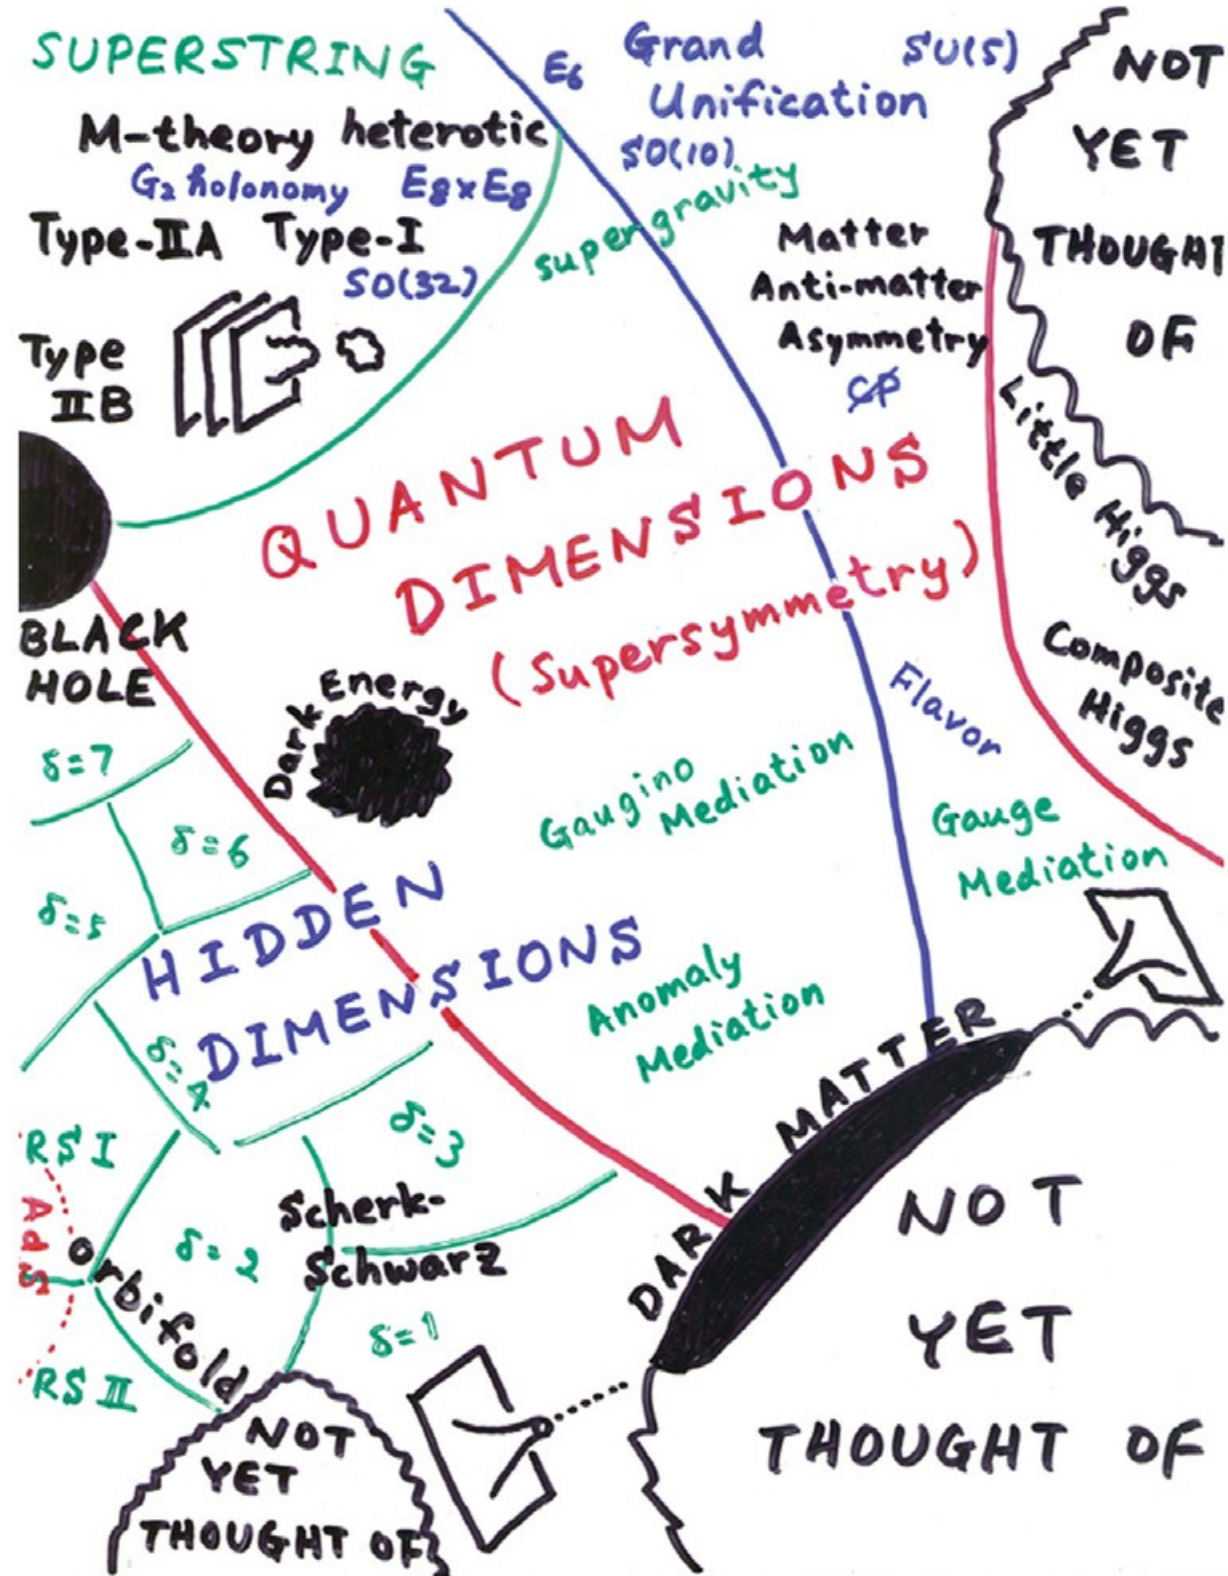 SUPERSTRING
M-theory heterotic
G₂ holonomy E8xE8
Type-IIA Type-I
SO(32)
Type
IIB
E₆
Grand
Unification
SU(5)
SO(10)
supergravity
Matter
Anti-matter
Asymmetry
CP
NOT
YET
THOUGHT
OF
Little Higgs
Composite
Higgs
QUANTUM
DIMENSIONS
(Supersymmetry)
BLACK
HOLE
Dark Energy
Flavor
Gaugino
Mediation
Gauge
Mediation
Anomaly
Mediation
HIDDEN
DIMENSIONS
δ=7
δ=6
δ=5
δ=4
δ=3
δ=2
δ=1
RS I
AdS
RS II
Orbifold
Scherk-
Schwarz
DARK MATTER
NOT
YET
THOUGHT OF
NOT
YET
THOUGHT OF